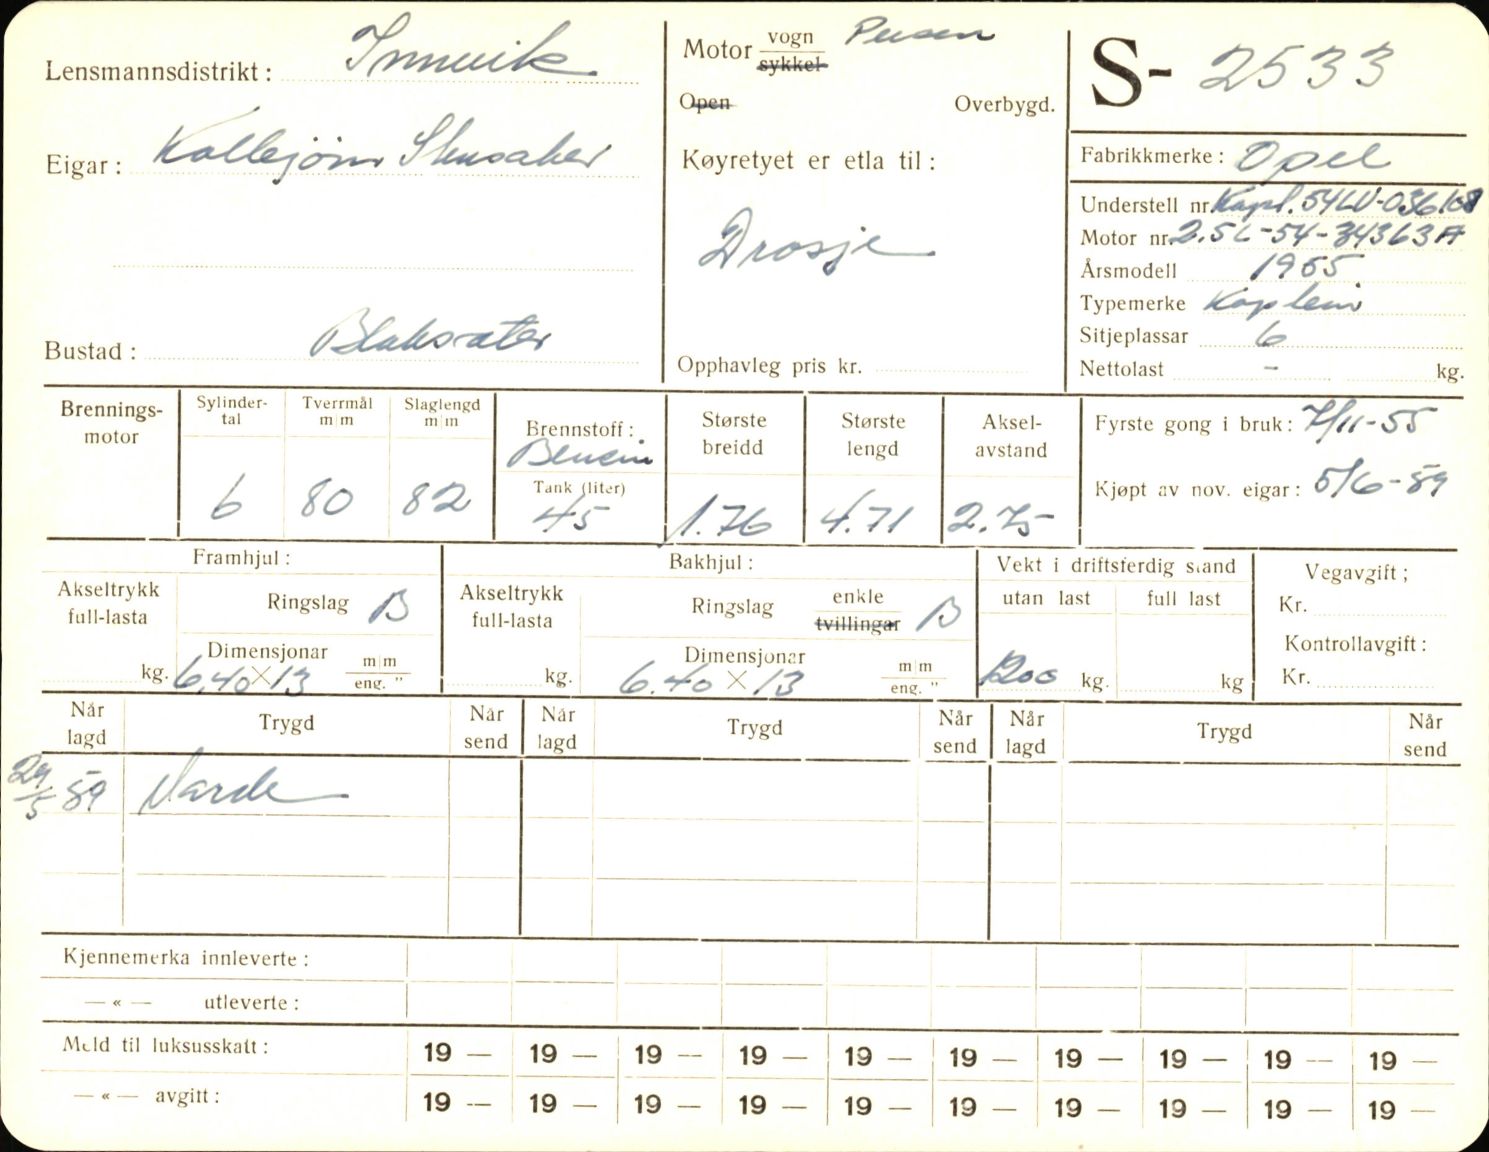 Lensmannsdistrikt: Innvik
Motor vogn Person
sykkel
Open Overbygd.
S- 2533
Eigar:
Køyretyet er etla til:
Drosje
Fabrikkmerke: Opel
Understell nr. Kapt. 54LV-036108
Motor nr. 2.5L-54-34363A
Årsmodell 1955
Typemerke Kaptein
Sitjeplassar 6
Nettolast - kg.
Bustad:
Opphavleg pris kr.
Brennings-
motor
Sylinder-
tal
6
Tverrmål
m|m
80
Slaglengd
m|m
82
Brennstoff:
Bensin
Tank (liter)
45
Største
breidd
1.76
Største
lengd
4.71
Aksel-
avstand
2.75
Fyrste gong i bruk: 7/11-55
Kjøpt av nov. eigar: 5/6-59
Framhjul:
Akseltrykk
full-lasta
kg.
Ringslag B
Dimensjonar m|m
6.40 × 13 eng. "
Bakhjul:
Akseltrykk
full-lasta
kg.
Ringslag enkle B
tvillingar
Dimensjonar m|m
6.40 × 13 eng. "
Vekt i driftsferdig stand
utan last full last
1200 kg. kg
Vegavgift;
Kr.
Kontrollavgift:
Kr.
Når
lagd
Trygd
Når
send
Når
lagd
Trygd
Når
send
Når
lagd
Trygd
Når
send
29/5 59 Varde
Kjennemerka innleverte:
— « — utleverte:
Meld til luksusskatt: 19 — 19 — 19 — 19 — 19 — 19 — 19 — 19 — 19 — 19 —
— « — avgitt: 19 — 19 — 19 — 19 — 19 — 19 — 19 — 19 — 19 — 19 —